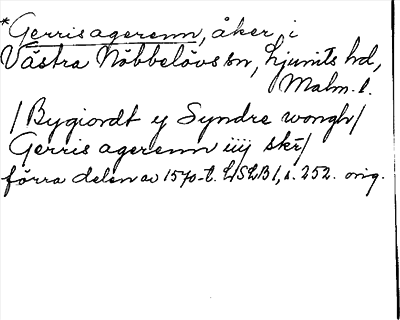 *Gerris agerenn, åker i
Västra Nöbbelövs sn, Ljunits hd,
Malm. l.
/Bygiordt y Syndre wongh/
Gerris agerenn iiij skr/
förra delen av 1570-t. LSLB1, s. 252. orig.